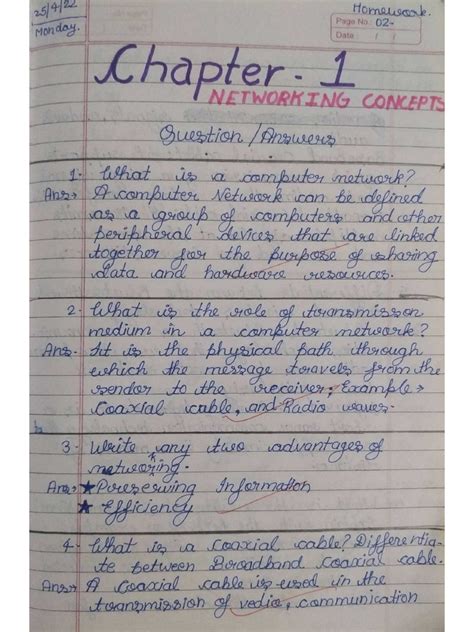 25/4/22
Monday.
Homework.
Page No.: 02-
Date / /
Chapter - 1
NETWORKING CONCEPTS
Question / Answers
1- What is a computer network?
Ans→ A computer Network can be defined
as a group of computers and other
peripheral devices that are linked
together for the purpose of sharing
data and hardware resources.
2- What is the role of transmisson
medium in a computer network?
Ans- It is the physical path through
which the message travels from the
sender to the receiver; Example→
Coaxial cable, and Radio waves-
3- Write any two advantages of
networking.
Ans→ ★ Preserving Information
★ Efficiency
4- What is a Coaxial cable? Differentia-
te between Broadband Coaxial cable.
Ans→ A Coaxial cable is used in the
transmission of vedio, communication